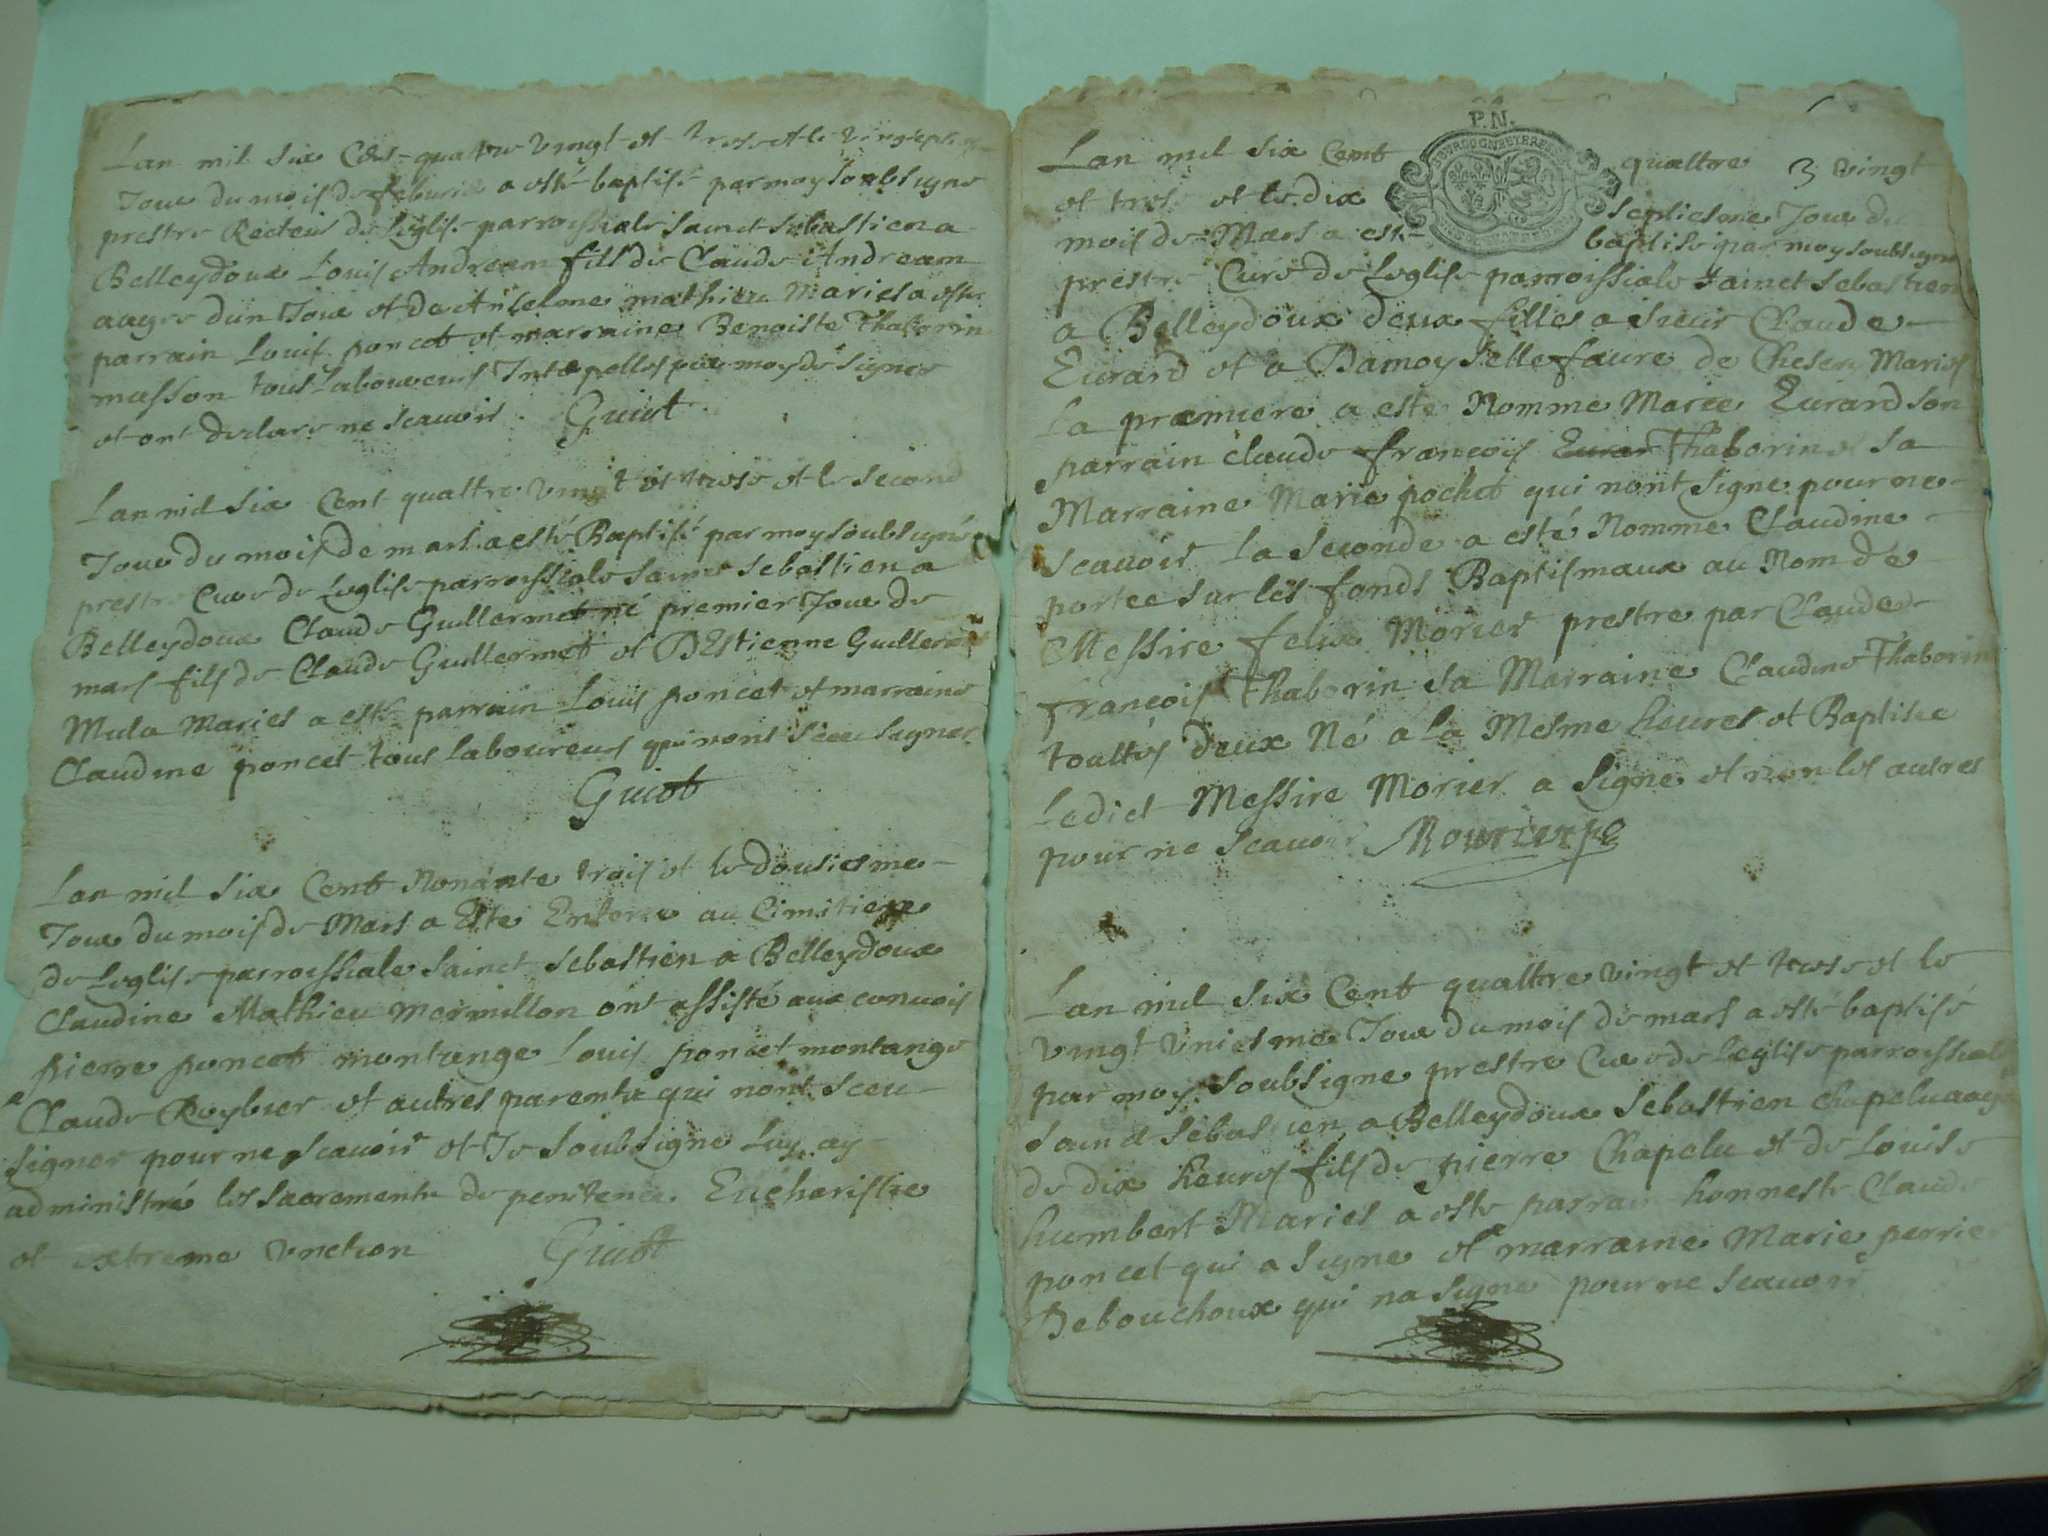 Lan mil six Cent quattre vingt et trese et le vingtsept
Jour du mois de feburier a esté baptisé par moy soubsigne
prestre Recteur de Leglise parroissiale sainct sebastien a
Belleydoux Louis Andream fils de Claude Andream
aagee dun Jour et de Anselme mathieu Maries a este
parrain Louis poncet et marraine Benoiste Thaborin
masson tous Laboureurs Interpelles par moy de signer
et ont declare ne scauoir Guiot
Lan mil six Cent quattre vingt et trese et le second
Jour du mois de mars a esté Baptisé par moy soubsigné
prestre Cure de Leglise parroissiale sainct sebastien a
Belleydoux Claude Guillermet né premier Jour de
mars fils de Claude Guillermet et DEstienne Guillermet
Mula Maries a este parrain Louis poncet et marraine
Claudine poncet tous laboureurs qui nont sceu signer
Guiot
Lan mil six Cent Nonante trois et le dousiesme
Jour du mois de Mars a Este Enterre au Cimitiere
de Leglise parroissiale sainct sebastien a Belleydoux
Claudine Mathieu mermillon ont assisté aux conuois
pierre poncet montange Louis poncet montange
Claude Reybier et autres parents qui nont sceu
signer pour ne scauoir et Je soubsigne Luy ay
administré les sacrements de penitence Eucharistie
et extreme vnction Guiot
P.N.
Lan mil six Cent quattre 3 vingt
et trese et le dix septiesme Jour du
mois de Mars a este baptise par moy soubsigne
prestre Cure de Leglise parroissiale sainct sebastien
a Belleydoux deux filles a sieur Claude
Eurard et a Damoyselle faure de Chesery Maries
La premiere a este Nomme Marie Eurard son
parrain claude françois Eurar Thaborin et sa
Marraine Marie pochet qui nont signe pour ne
scauoir La seconde a esté Nomme Claudine
portee sur les fonds Baptismaux au Nom de
Messire felix Morier prestre par Claude
françois Thaborin sa Marraine Claudine Thaborin
touttes deux Né a La Mesme heures et Baptisee
Ledict Messire Morier a signe et non les autres
pour ne scauoir
Lan mil six Cent quattre vingt et trese et le
vingt vniesme Jour du mois de mars a esté baptisé
par moy soubsigne prestre Cure de Leglise parroissiale
sainct sebastien a Belleydoux sebastien chapelu aagé
de dix heures fils de pierre Chapelu et de Louise
humbert Maries a este parrain honneste Claude
poncet qui a signe et marraine Marie perrier
Debouchoux qui na signe pour ne scauoir